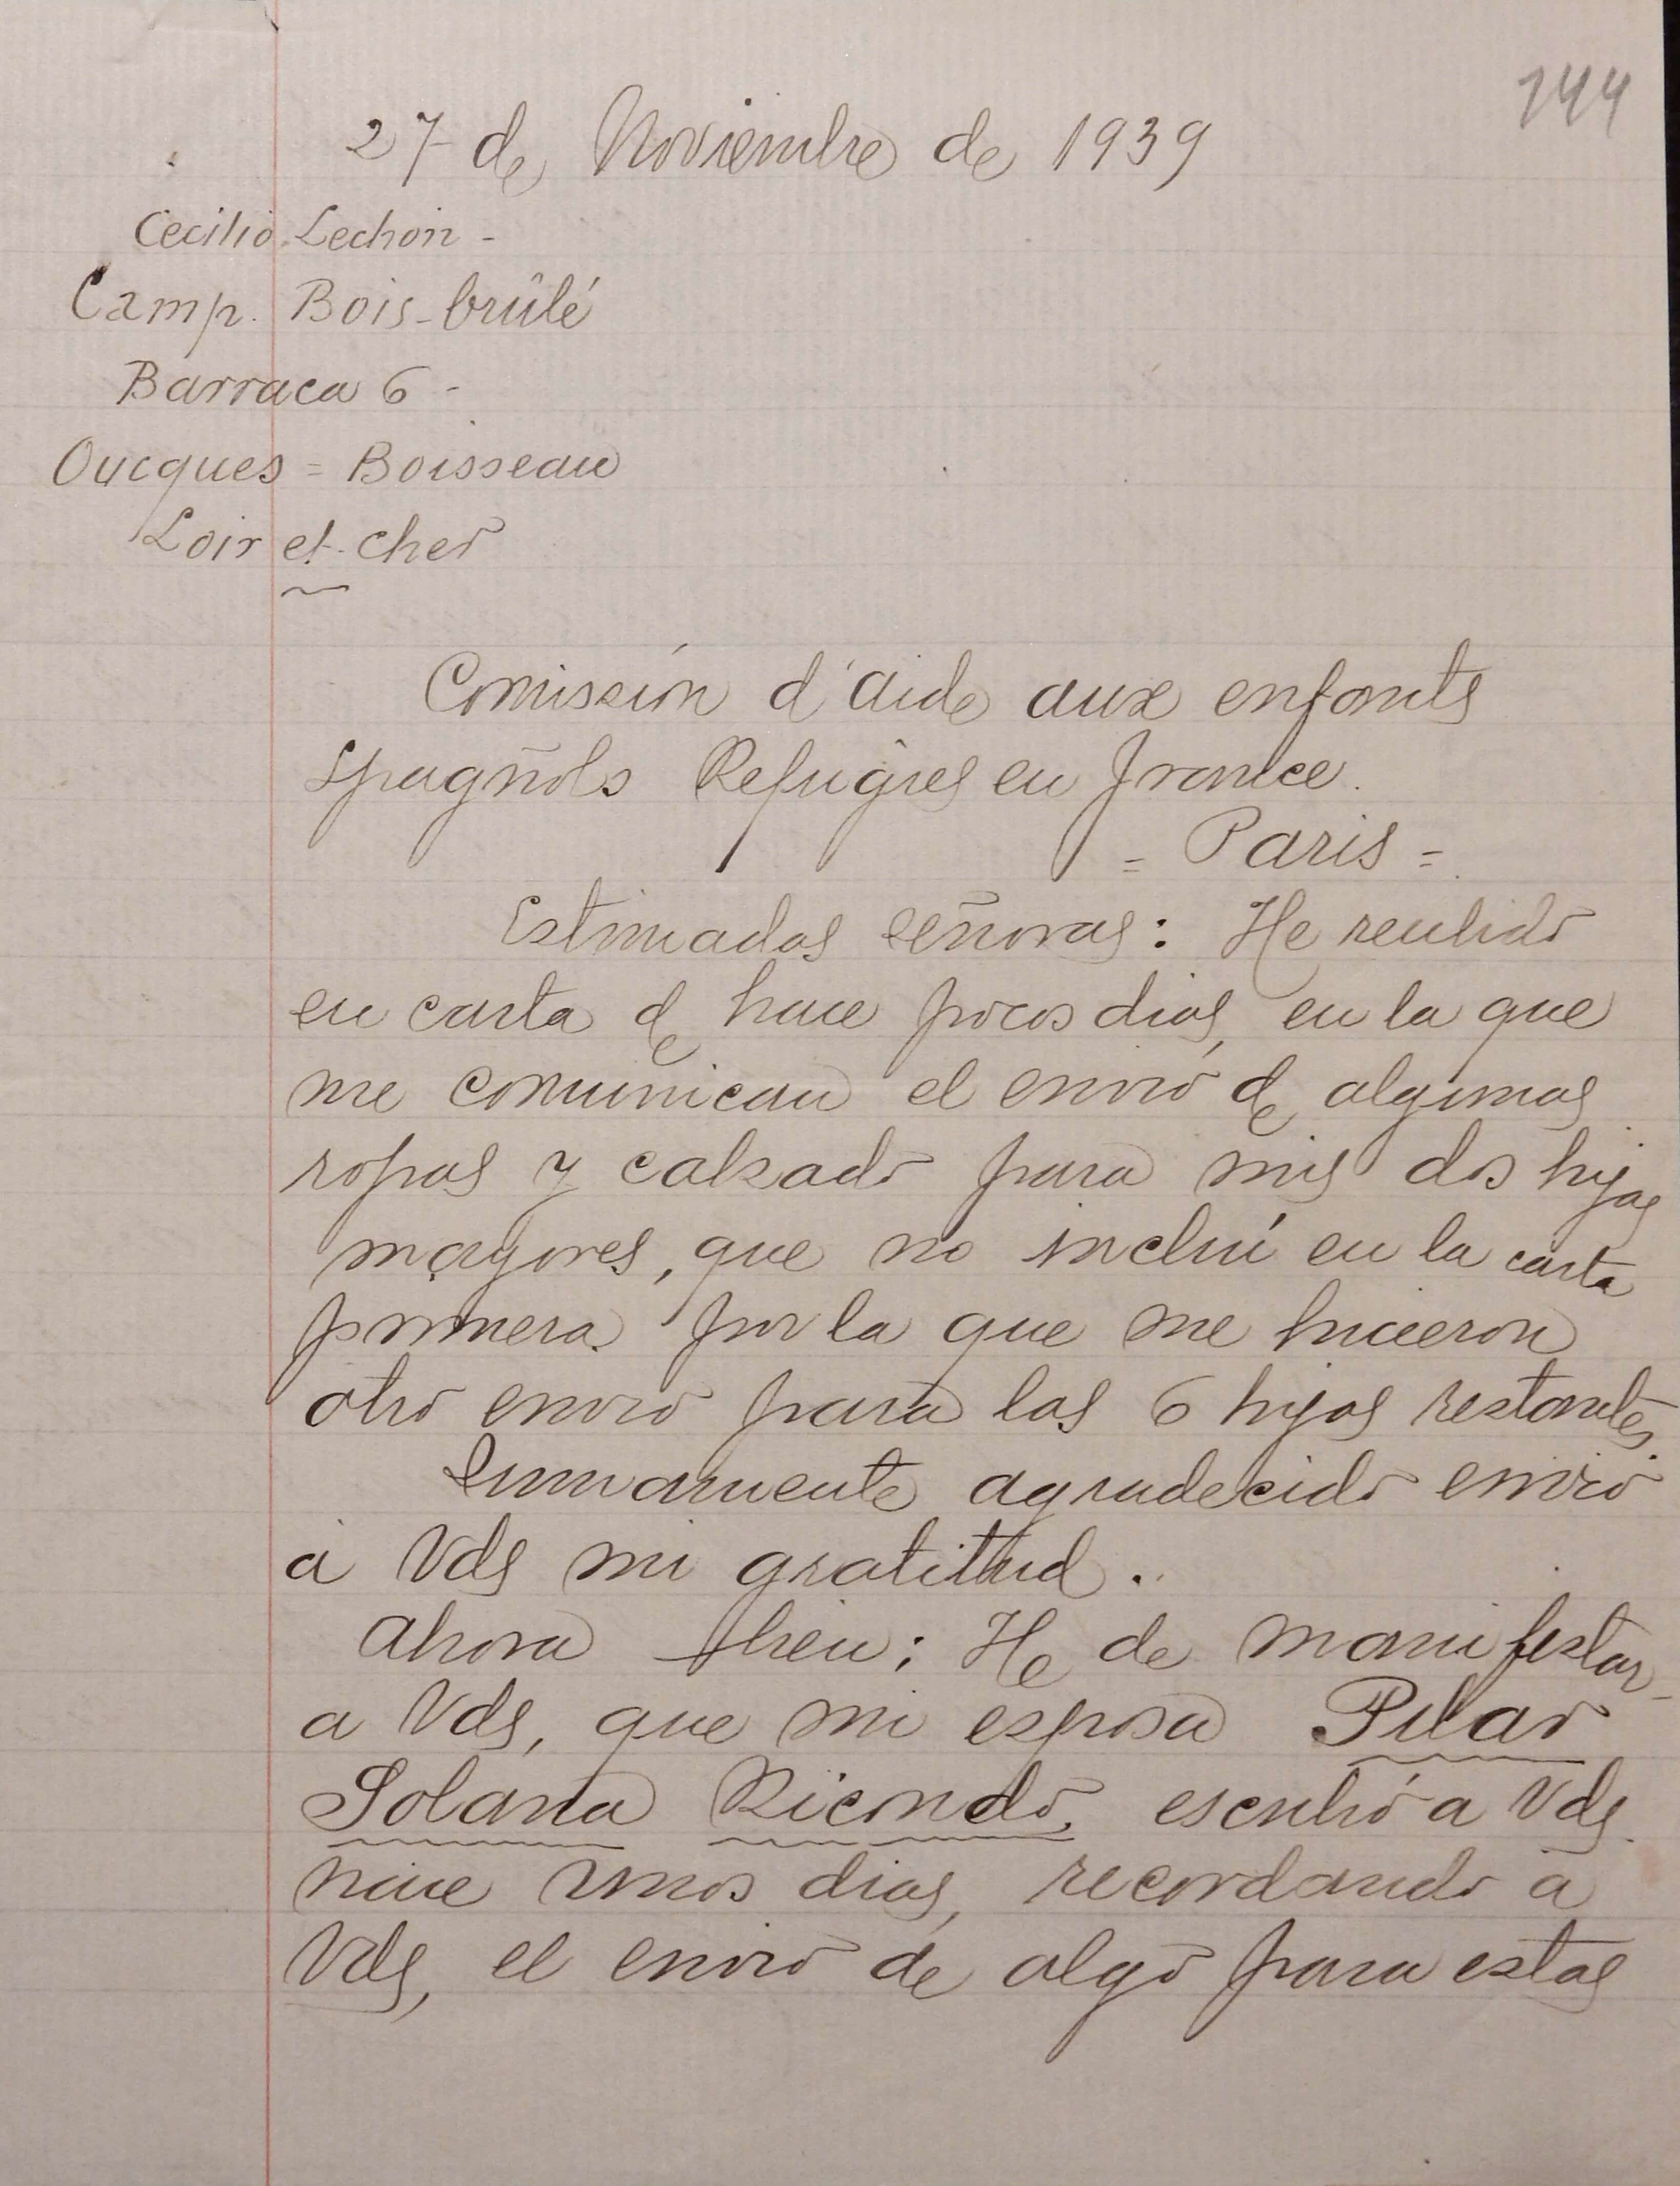 144
27 de Noviembre de 1939
Cecilio Lechón -
Camp. Bois-brûlé
Barraca 6 -
Oucques = Boisseau
Loir et-cher
Comissión d'aide aux enfants
spagñols Refugies en france.
= Paris =
Estimadas señoras: He recibido
en carta de hace pocos dias, en la que
me comunican el envio de algunas
ropas y calzado para mis dos hijas
mayores, que no incluí en la carta
primera por la que me hicieron
otro envio para los 6 hijos restantes.
Sumamente agradecido envio
a Vds mi gratitud.
Ahora bien; He de manifestar
a Vds, que mi esposa Pilar
Solana Ricondo, escribió a Vds.
hace unos dias, recordando a
Vds, el envio de algo para estas